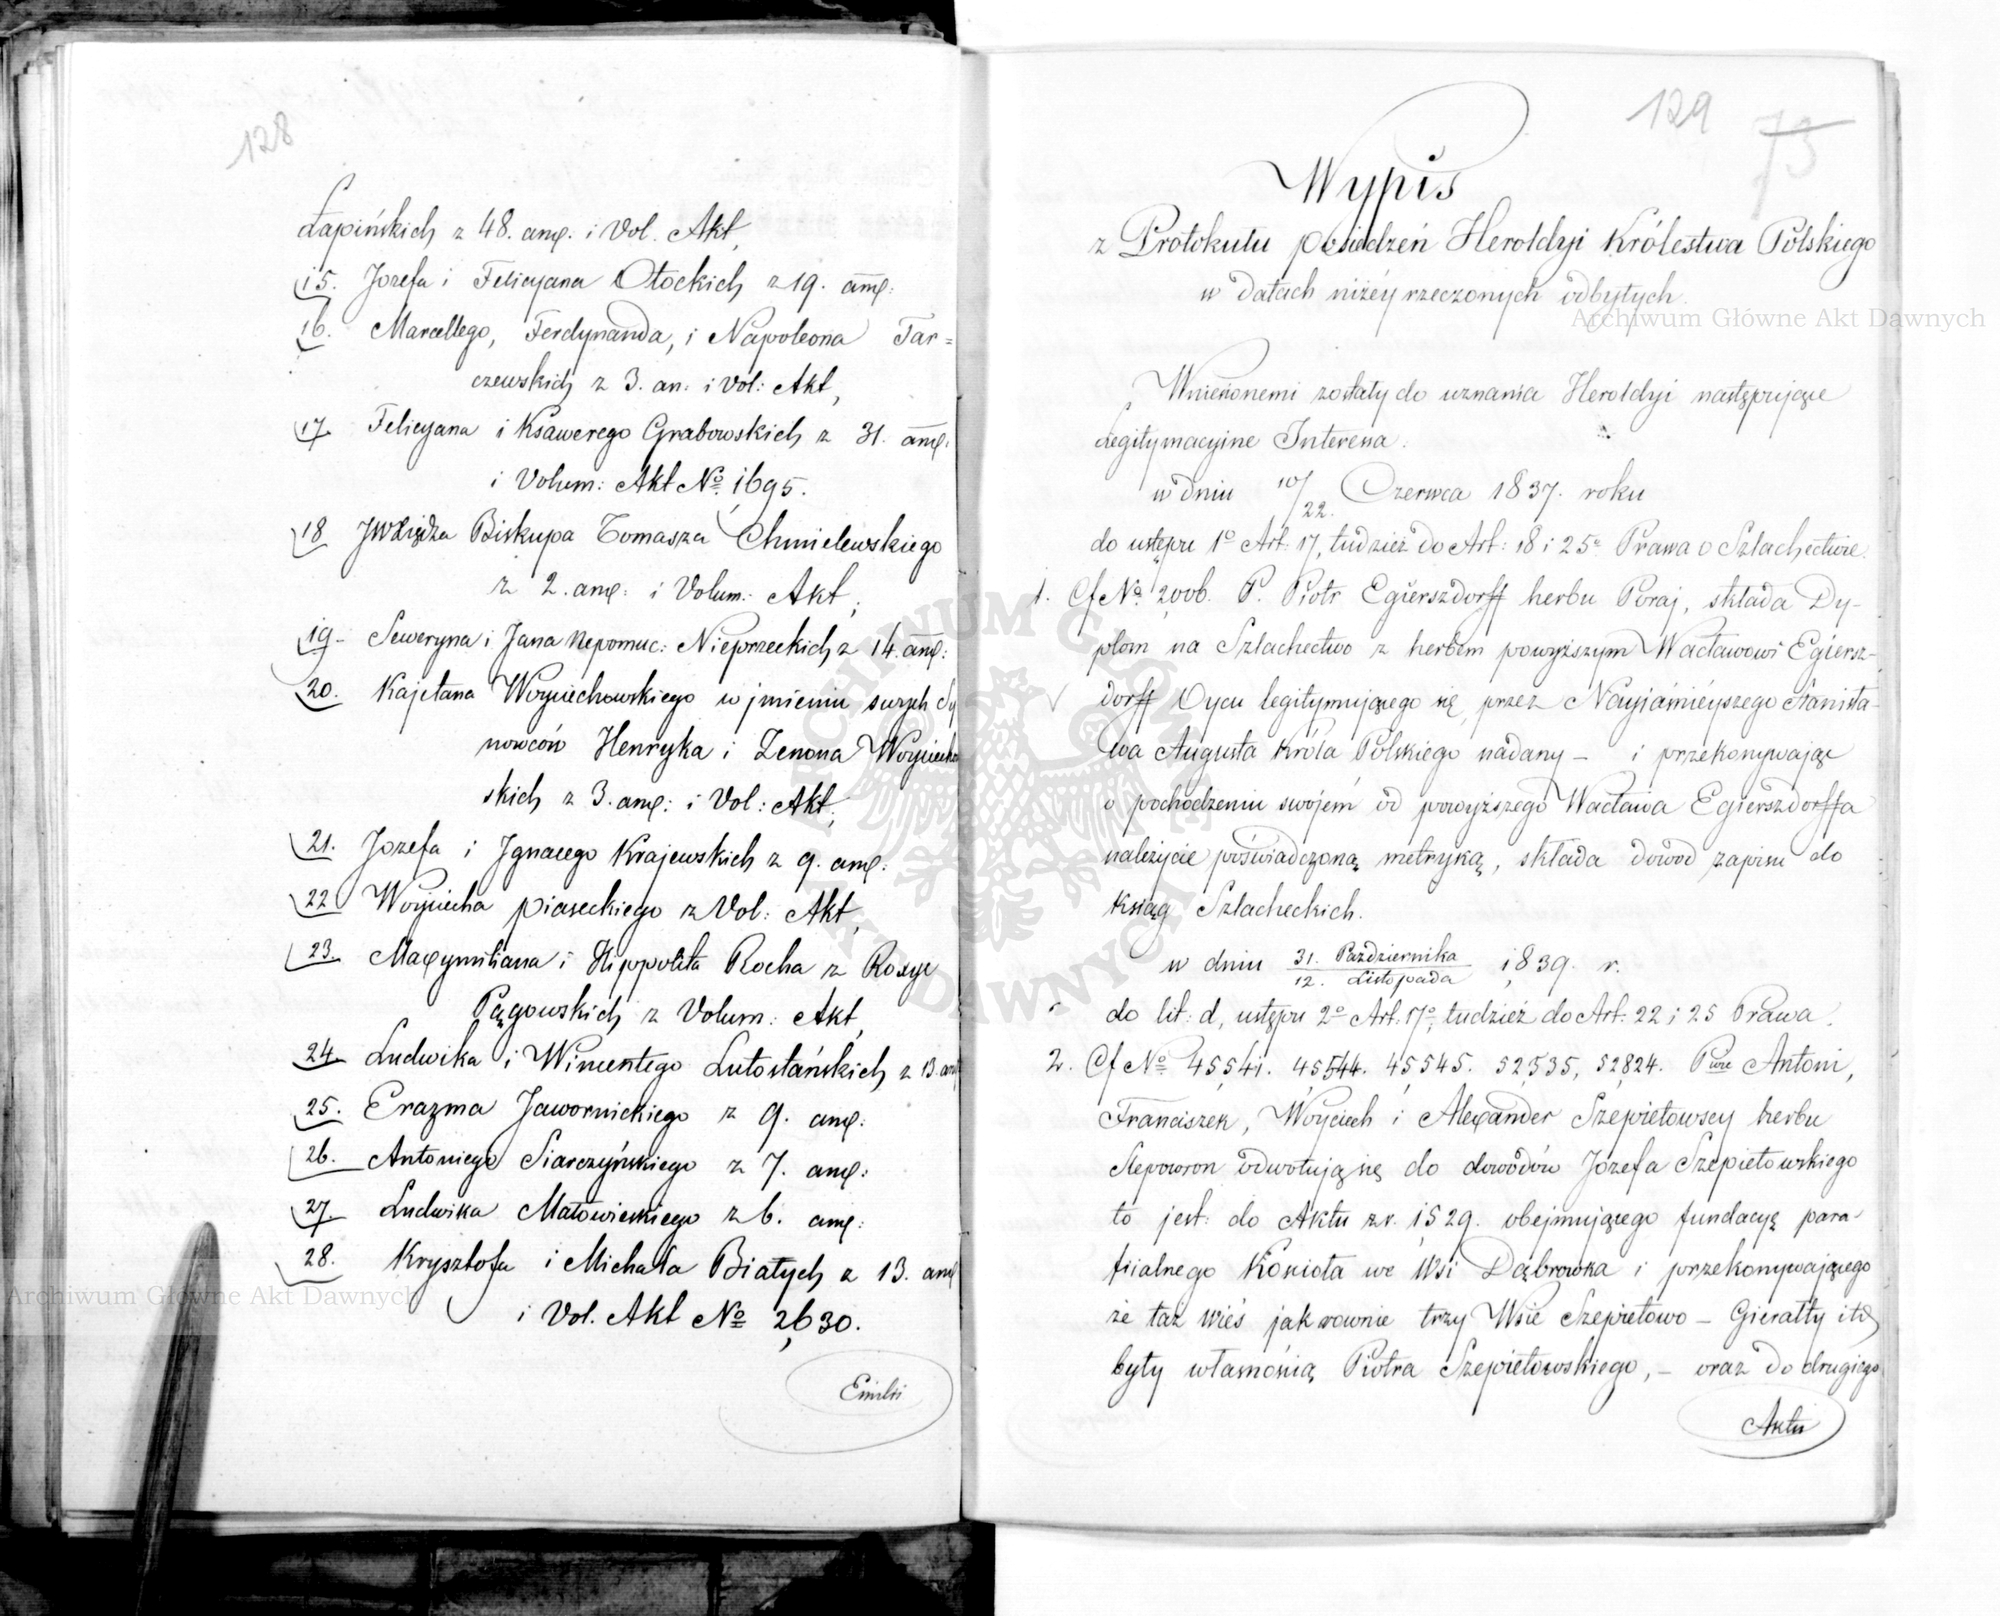 128
Łapińskich z 48. anꝗ. i Vol. Akt,
15. Jozefa i Felicyana Otockich z 19. anꝗ:
16. Marcellego, Ferdynanda, i Napoleona Tar=
czewskich z 3. an: i Vol: Akt,
17. Felicyana i Ksawerego Grabowskich z 31. anꝗ.
i Volum: Akt No. 1695.
18 JWXiędza Biskupa Tomasza Chmielewskiego
z 2. anꝗ: i Volum: Akt,
19- Seweryna i Jana Nepomuc: Nieprzeckich z 14. anꝗ:
20. Kajetana Woyciechowskiego w jmieniu swych Sy
nowców Henryka i Zenona Woyciecho
skich z 3. anꝗ: i Vol: Akt,
21. Jozefa i Jgnacego Krajewskich z 9. anꝗ:
22 Woyciecha piaseckiego z Vol: Akt,
23. Maxymiliana i Hippolita Rocha z
Pągowskich z Volum: Akt,
24. Ludwika i Wincentego Lutosłańskich z 13. anꝗ
25. Erazma Jawornickiego z 9. anꝗ:
26. Antoniego Siarczyńskiego z 7. anꝗ:
27. Ludwika Małowieskiego z 6. anꝗ:
28. Krysztofa i Michała Białych z 13. anꝗ
i Vol. Akt No 2,630.
Emilii
129 73
Wypis
z Protokułu posiedzeń Heroldyi Królestwa Polskiego
w datach niżéy rzeczonych odbytych.
Wniesionemi zostały do uznania Heroldyi następujące
Legitymacyjne Interesa.
w dniu 10/22. Czerwca 1837. roku
do ustępu 1o Art: 17, tudzież do Art: 18 i 25o Prawa o Szlachectwie.
1. Cf No. 2,006. P. Piotr Egierszdorff herbu Poraj, składa Dy-
plom na Szlachectwo z herbem powyższym Wacławowi Egiersz-
dorff Oycu legitymującego się, przez Nayjaśnieyszego Stanisła-
wa Augusta Króla Polskiego nadany – i przekonywając
o pochodzeniu swojém od powyższego Wacława Egierszdorffa
należycie poświadczoną metryką, składa dowod zapisu do
Ksiąg Szlacheckich.
w dniu 31. Października / 12. Listopada 1,839. r.
do lit: d, ustępu 2o Art: 17o, tudzież do Art: 22 i 25 Prawa.
2. Cf No 45,541. 45,544. 45,545. 52,535, 52,824. Antoni,
Franciszek, Woyciech i Alexander Szepietowscy herbu
Slepowron odwołują się do dowodów Józefa Szepietowskiego
to jest: do Aktu z r. 1529. obejmującego fundacyą para-
fiialnego Kościoła we Wsi Dąbrowka i przekonywającego
że taż wieś jak rownie trzy Wsie Szepietowo – Gierałty itd
były własnością Piotra Szepietowskiego, – oraz do drugiego
Aktu
Archiwum Główne Akt Dawnych
Archiwum Główne Akt Dawnych
ARCHIWUM GŁÓWNE AKT DAWNYCH